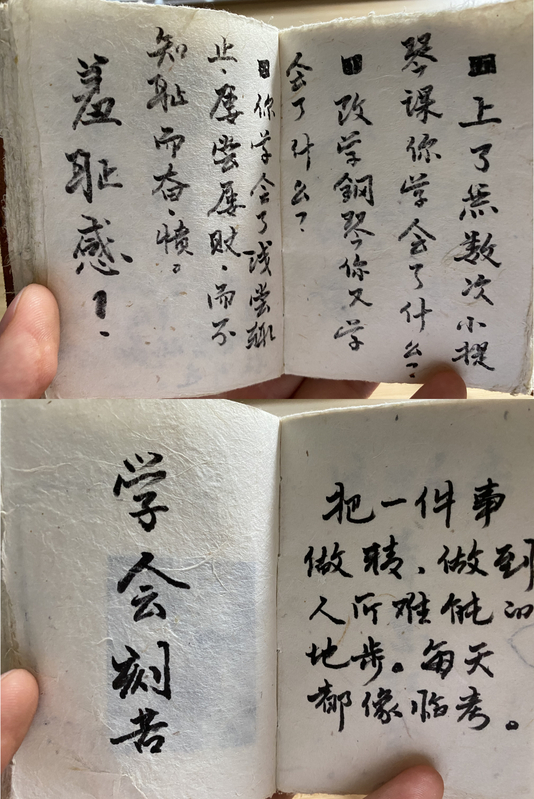 上了無数次小提
琴课你学会了什么?
改学鋼琴你又学
会了什么?
你学会了浅尝辄
止、屡尝屡败、而不
知耻而奋、愤。
羞耻感!
把一件事
做精、做到
人所难能的
地步。每天
都像临考。
学会刻苦